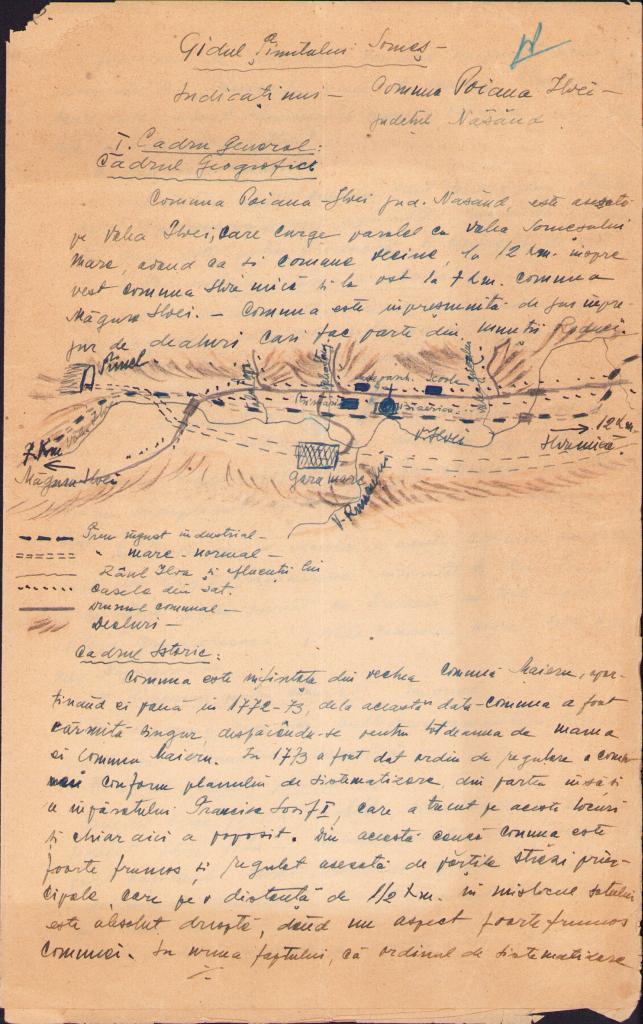 Gidul Ținutului Someș -
Indicațiuni - Comuna Poiana Ilvei -
județul Năsăud
I. Cadru General:
Cadrul Geografic
Comuna Poiana-Ilvei jud. Năsăud, este așezată
pe Valea Ilvei, care curge paralel cu valea Someșului
Mare, având ca și comune vecine, la 12 km. înspre
vest comuna Ilva mică și la ost la 7 km. comuna
Măgura Ilvei. - Comuna este împresmuită de jur împre-
jur de dealuri cari fac parte din munții Rodnei.
Tunel
școala
Biserica
V. Ilvei
12 Km.
Ilva mică.
7 Km
Măgura Ilvei
Gara mare
Tren îngust industrial -
" mare - normal -
Râul Ilva și afluenții lui
Casele din sat.
Drumul comunal -
Dealuri -
Cadrul Istoric:
Comuna este înființată din vechea comună Maieru, apar-
ținând ei până în 1772-73, dela această dată comuna a fost
cârmită singur, despăcându-se pentru totdeauna de mama
ei comuna Maieru. În 1773 a fost dat ordin de regulare a comu-
nei conform planului de sistematizare, din partea însăși
a împăratului Francisc Iosif II, care a trecut pe aceste locuri
și chiar aici a poposit. Din această cauză comuna este
foarte frumos și regulat așezată de părțile străzi prin-
cipale, care pe o distanță de 1/2 km. în mijlocul satului
este absolut dreaptă, dând un aspect foarte frumos
comunei. În urma faptului, că ordinul de sistematizare